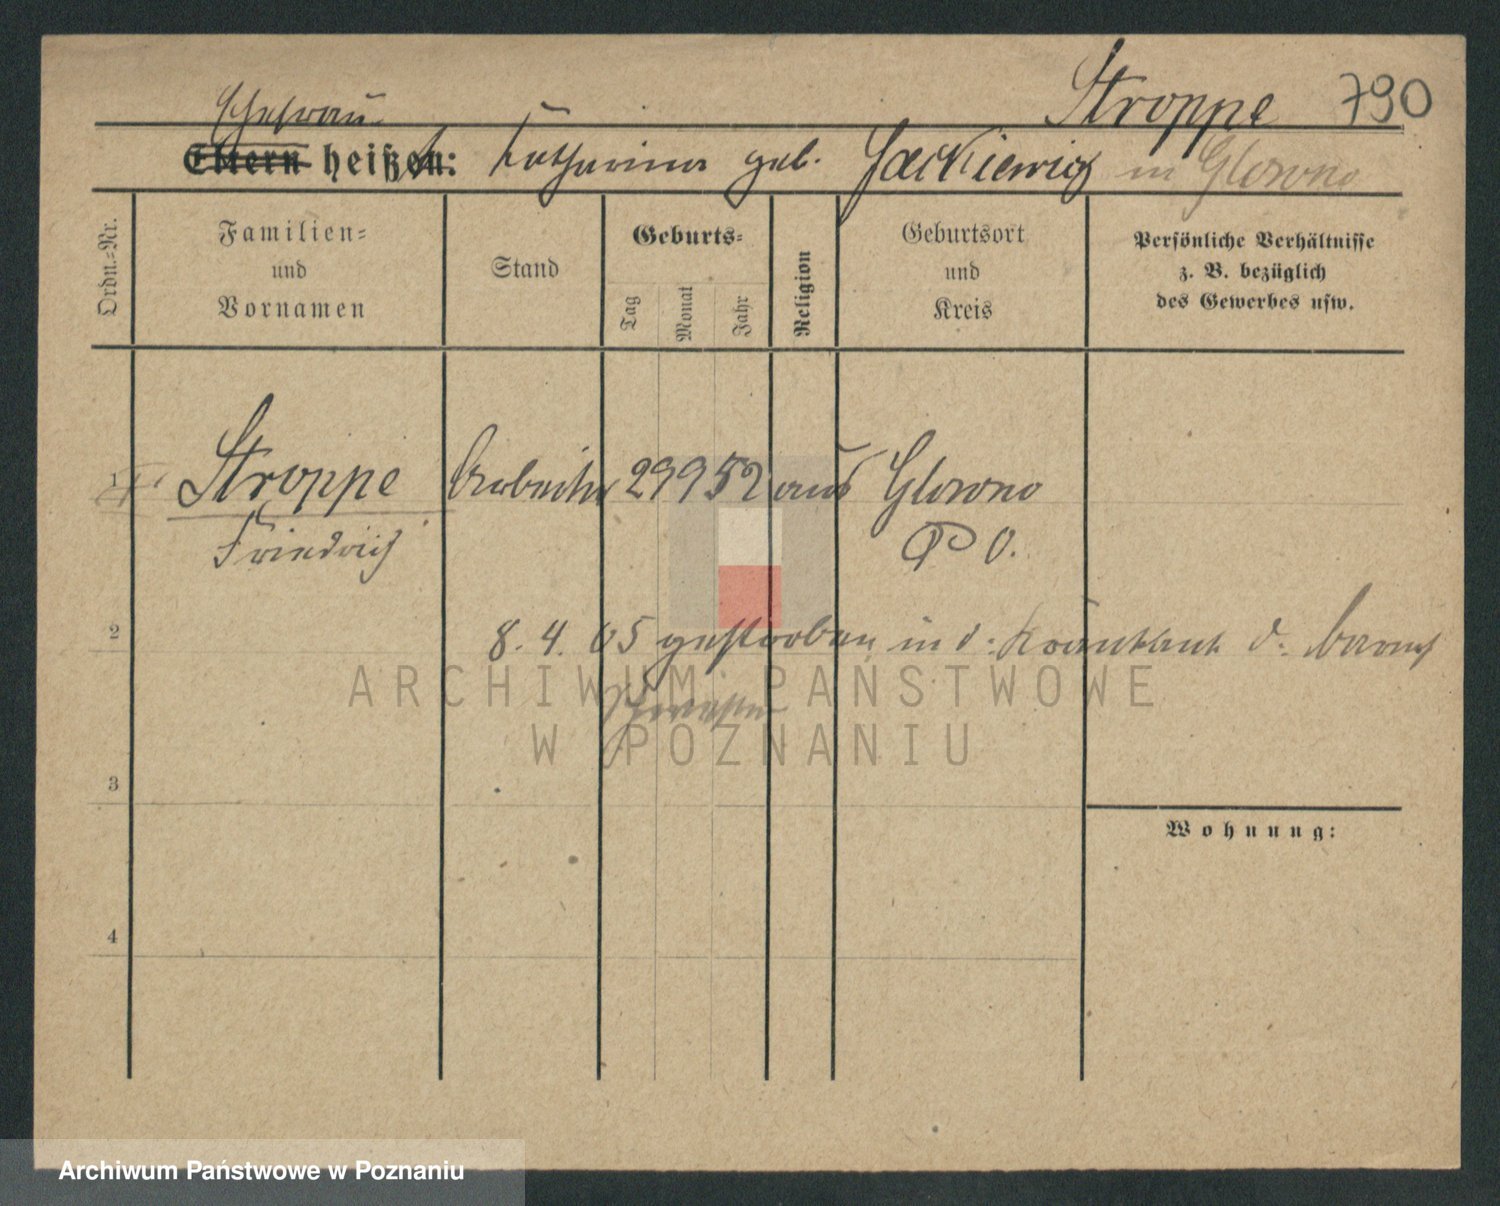 Stroppe 790
Ehefrau
Eltern heißen: Katharina geb. Jackiewicz in Glowno
Ordn.-Nr.
Familien-
und
Vornamen
Stand
Geburts-
Tag
Monat
Jahr
Religion
Geburtsort
und
Kreis
Persönliche Verhältnisse
z. B. bezüglich
des Gewerbes usw.
1 Stroppe Arbeiter 29 9 52 aus Glowno
Friedrich P O.
2 8. 4. 05 gestorben in d. Krankanst. d. barmh
Schwestern
ARCHIWUM PAŃSTWOWE
W POZNANIU
3
Wohnung:
4
Archiwum Państwowe w Poznaniu